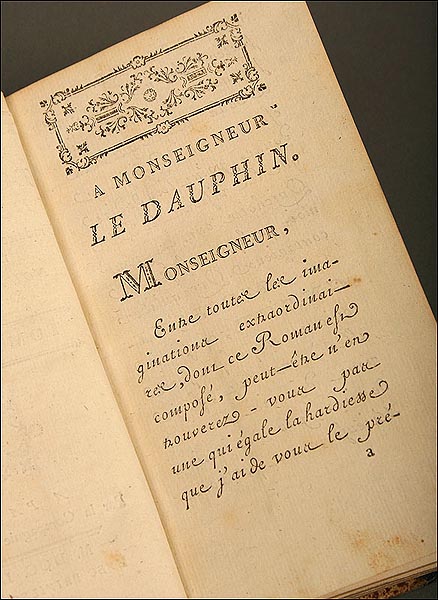 A MONSEIGNEUR
LE DAUPHIN.
MONSEIGNEUR,
Entre toutes les ima-
ginations extraordinai-
res, dont ce Roman est
composé, peut-être n'en
trouverez-vous pas
une qui égale la hardiesse
que j'ai de vous le pré-
a